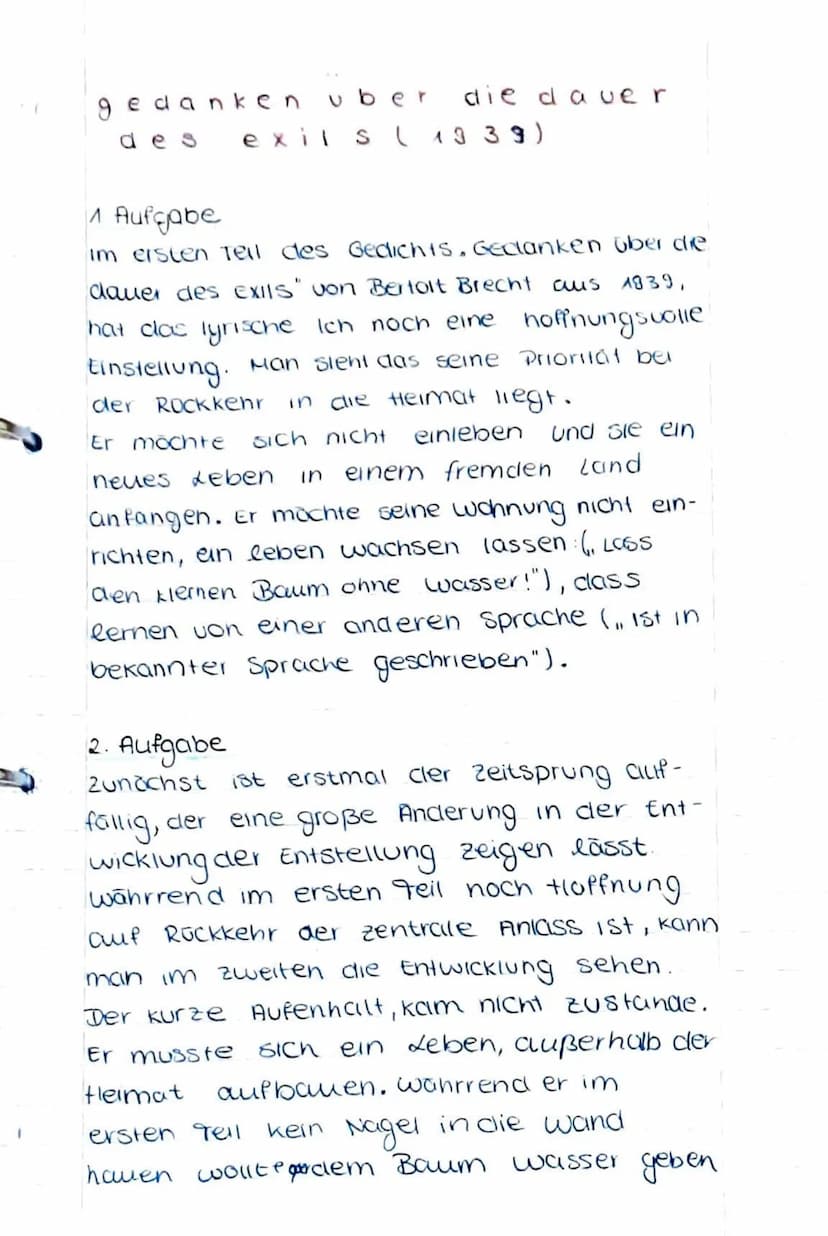 gedanken uber die dauer
des exils (1939)
1 Aufgabe
im ersten Teil des Gedichts „Gedanken über die
dauer des Exils" von Bertolt Brecht aus 1939,
hat das lyrische Ich noch eine hoffnungsvolle
Einstellung. Man sieht das seine Priorität bei
der Rückkehr in die Heimat liegt.
Er möchte sich nicht einleben und sie ein
neues Leben in einem fremden Land
anfangen. Er möchte seine Wohnung nicht ein-
richten, ein Leben wachsen lassen („Lass
den kleinen Baum ohne Wasser!"), dass
lernen von einer anderen Sprache („ist in
bekannter Sprache geschrieben").
2. Aufgabe
Zunächst ist erstmal der Zeitsprung auf-
fällig, der eine große Änderung in der Ent-
wicklung der Entstellung zeigen lässt.
Währrend im ersten Teil noch Hoffnung
auf Rückkehr der zentrale Anlass ist, kann
man im zweiten die Entwicklung sehen.
Der kurze Aufenhalt, kam nicht zustande.
Er musste sich ein Leben, außerhalb der
Heimat aufbauen. Währrend er im
ersten Teil kein Nagel in die Wand
hauen wollte dem Baum wasser geben